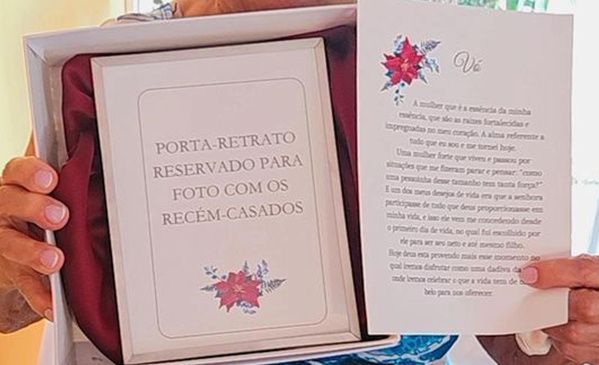 PORTA-RETRATO
RESERVADO PARA
FOTO COM OS
RECÉM-CASADOS
Vó
A mulher que é a essência da minha
essência, que são as raízes fortalecidas e
impregnadas no meu coração. A alma referente a
tudo que eu sou e me tornei hoje.
Uma mulher forte que viveu e passou por
situações que me fizeram parar e pensar: "como
uma pessoinha desse tamanho tem tanta força?"
E um dos meus desejos de vida era que a senhora
participasse de tudo que deus proporcionasse em
minha vida, e isso ele vem me concedendo desde
o primeiro dia de vida, no qual fui escolhido por
ele para ser seu neto e até mesmo filho.
Hoje deus esta provendo mais esse momento no
qual iremos disfrutar como uma dadiva da
onde iremos celebrar o que a vida nem de
belo para nos oferecer.